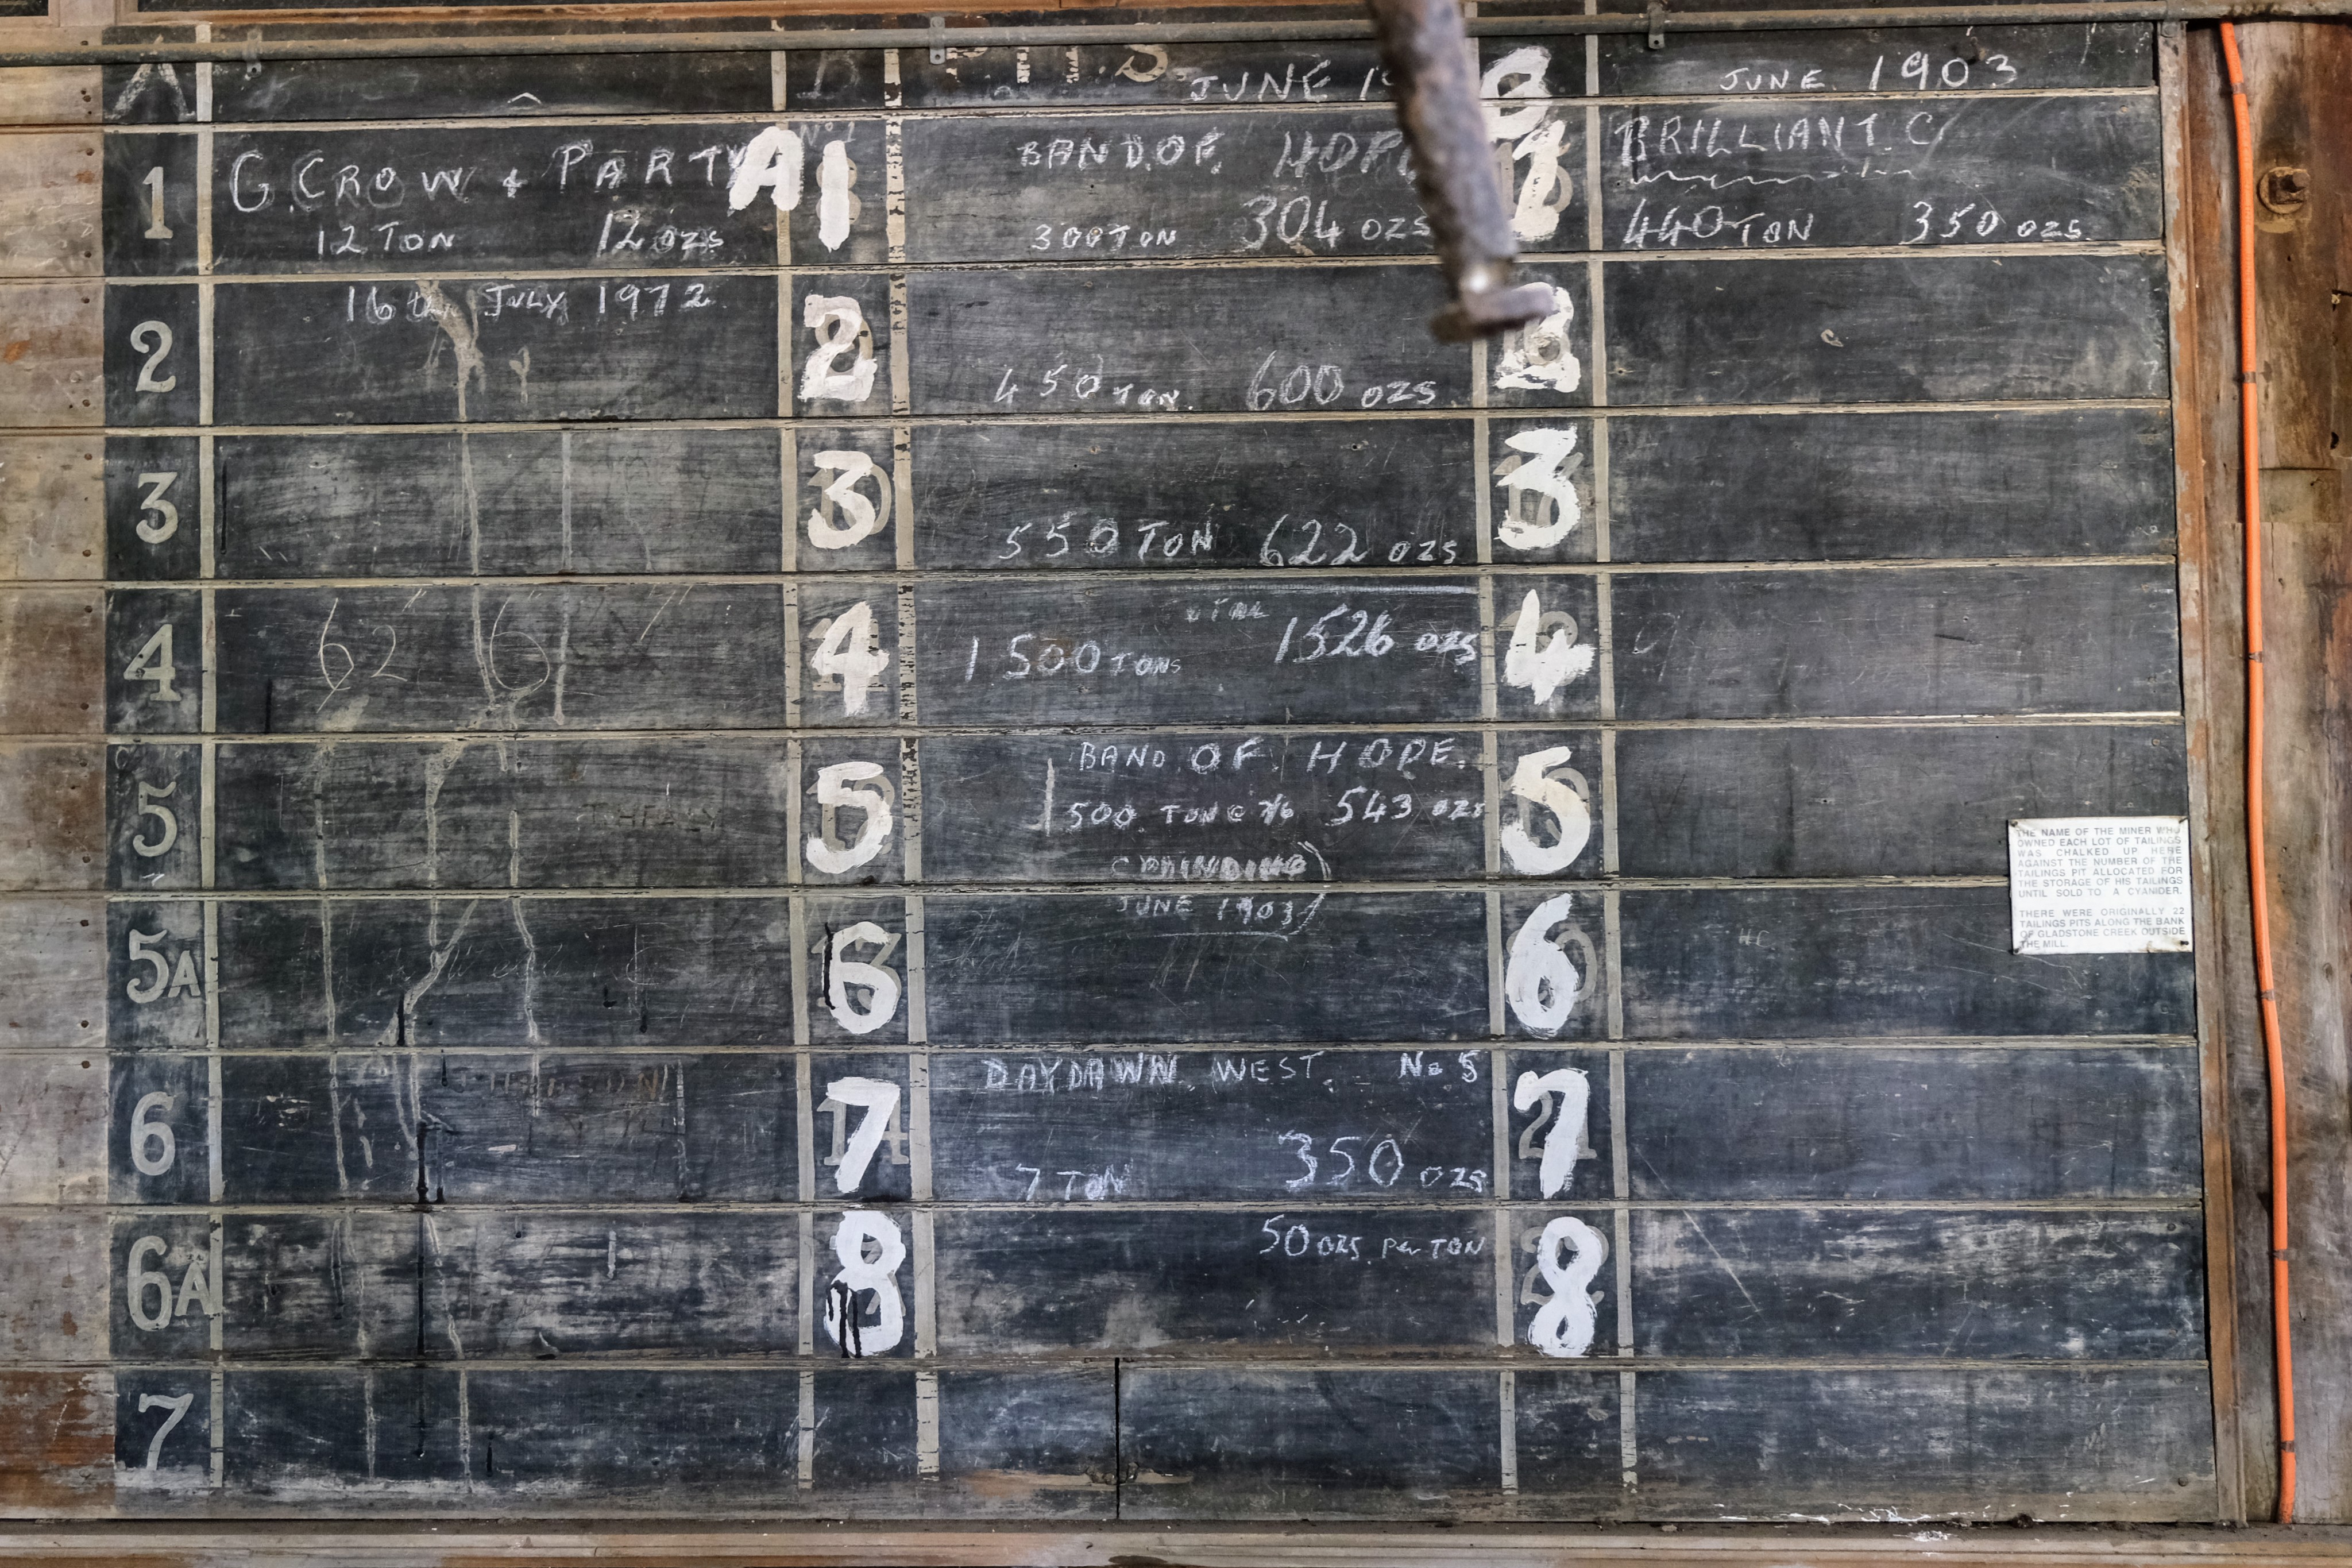 A
PITS
JUNE 19
JUNE. 1903
1
G. CROW + PARTY
A1
BAND. OF. HOPE
1
BRILLIANT. C
12 TON 12 OZS
300 TON 304 OZS
440 TON 350 OZS.
2
16th JULY 1972
2
450 TON. 600 OZS
2
3
3
550 TON 622 OZS
3
4
62 6
4
OTAL
1500 TONS 1526 OZS
4
5
5
BAND. OF. HOPE.
500 TON @ 7/6 543 OZS
JUNE 1903
5
THE NAME OF THE MINER WHO
OWNED EACH LOT OF TAILINGS
WAS CHALKED UP HERE
AGAINST THE NUMBER OF THE
TAILINGS PIT ALLOCATED FOR
THE STORAGE OF HIS TAILINGS
UNTIL SOLD TO A CYANIDER.
THERE WERE ORIGINALLY 22
TAILINGS PITS ALONG THE BANK
OF GLADSTONE CREEK OUTSIDE
THE MILL.
5A
6
6
6
7
DAY DAWN. WEST. No 5
7 TON 350 OZS
7
6A
8
50 OZS per TON
8
7